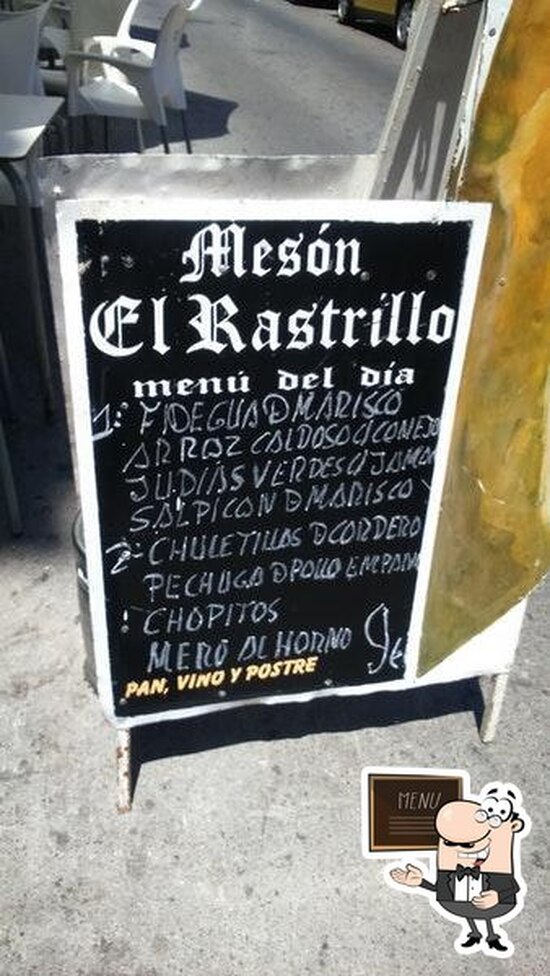 Mesón
El Rastrillo
menú del día
1º FIDEGUA D MARISCO
ARROZ CALDOSO C/ CONEJO
JUDIAS VERDES C/ JAMON
SALPICON D MARISCO
2º CHULETILLAS D CORDERO
PECHUGA D POLLO EMPANA
CHOPITOS
MERO AL HORNO 9€
PAN, VINO Y POSTRE
MENU